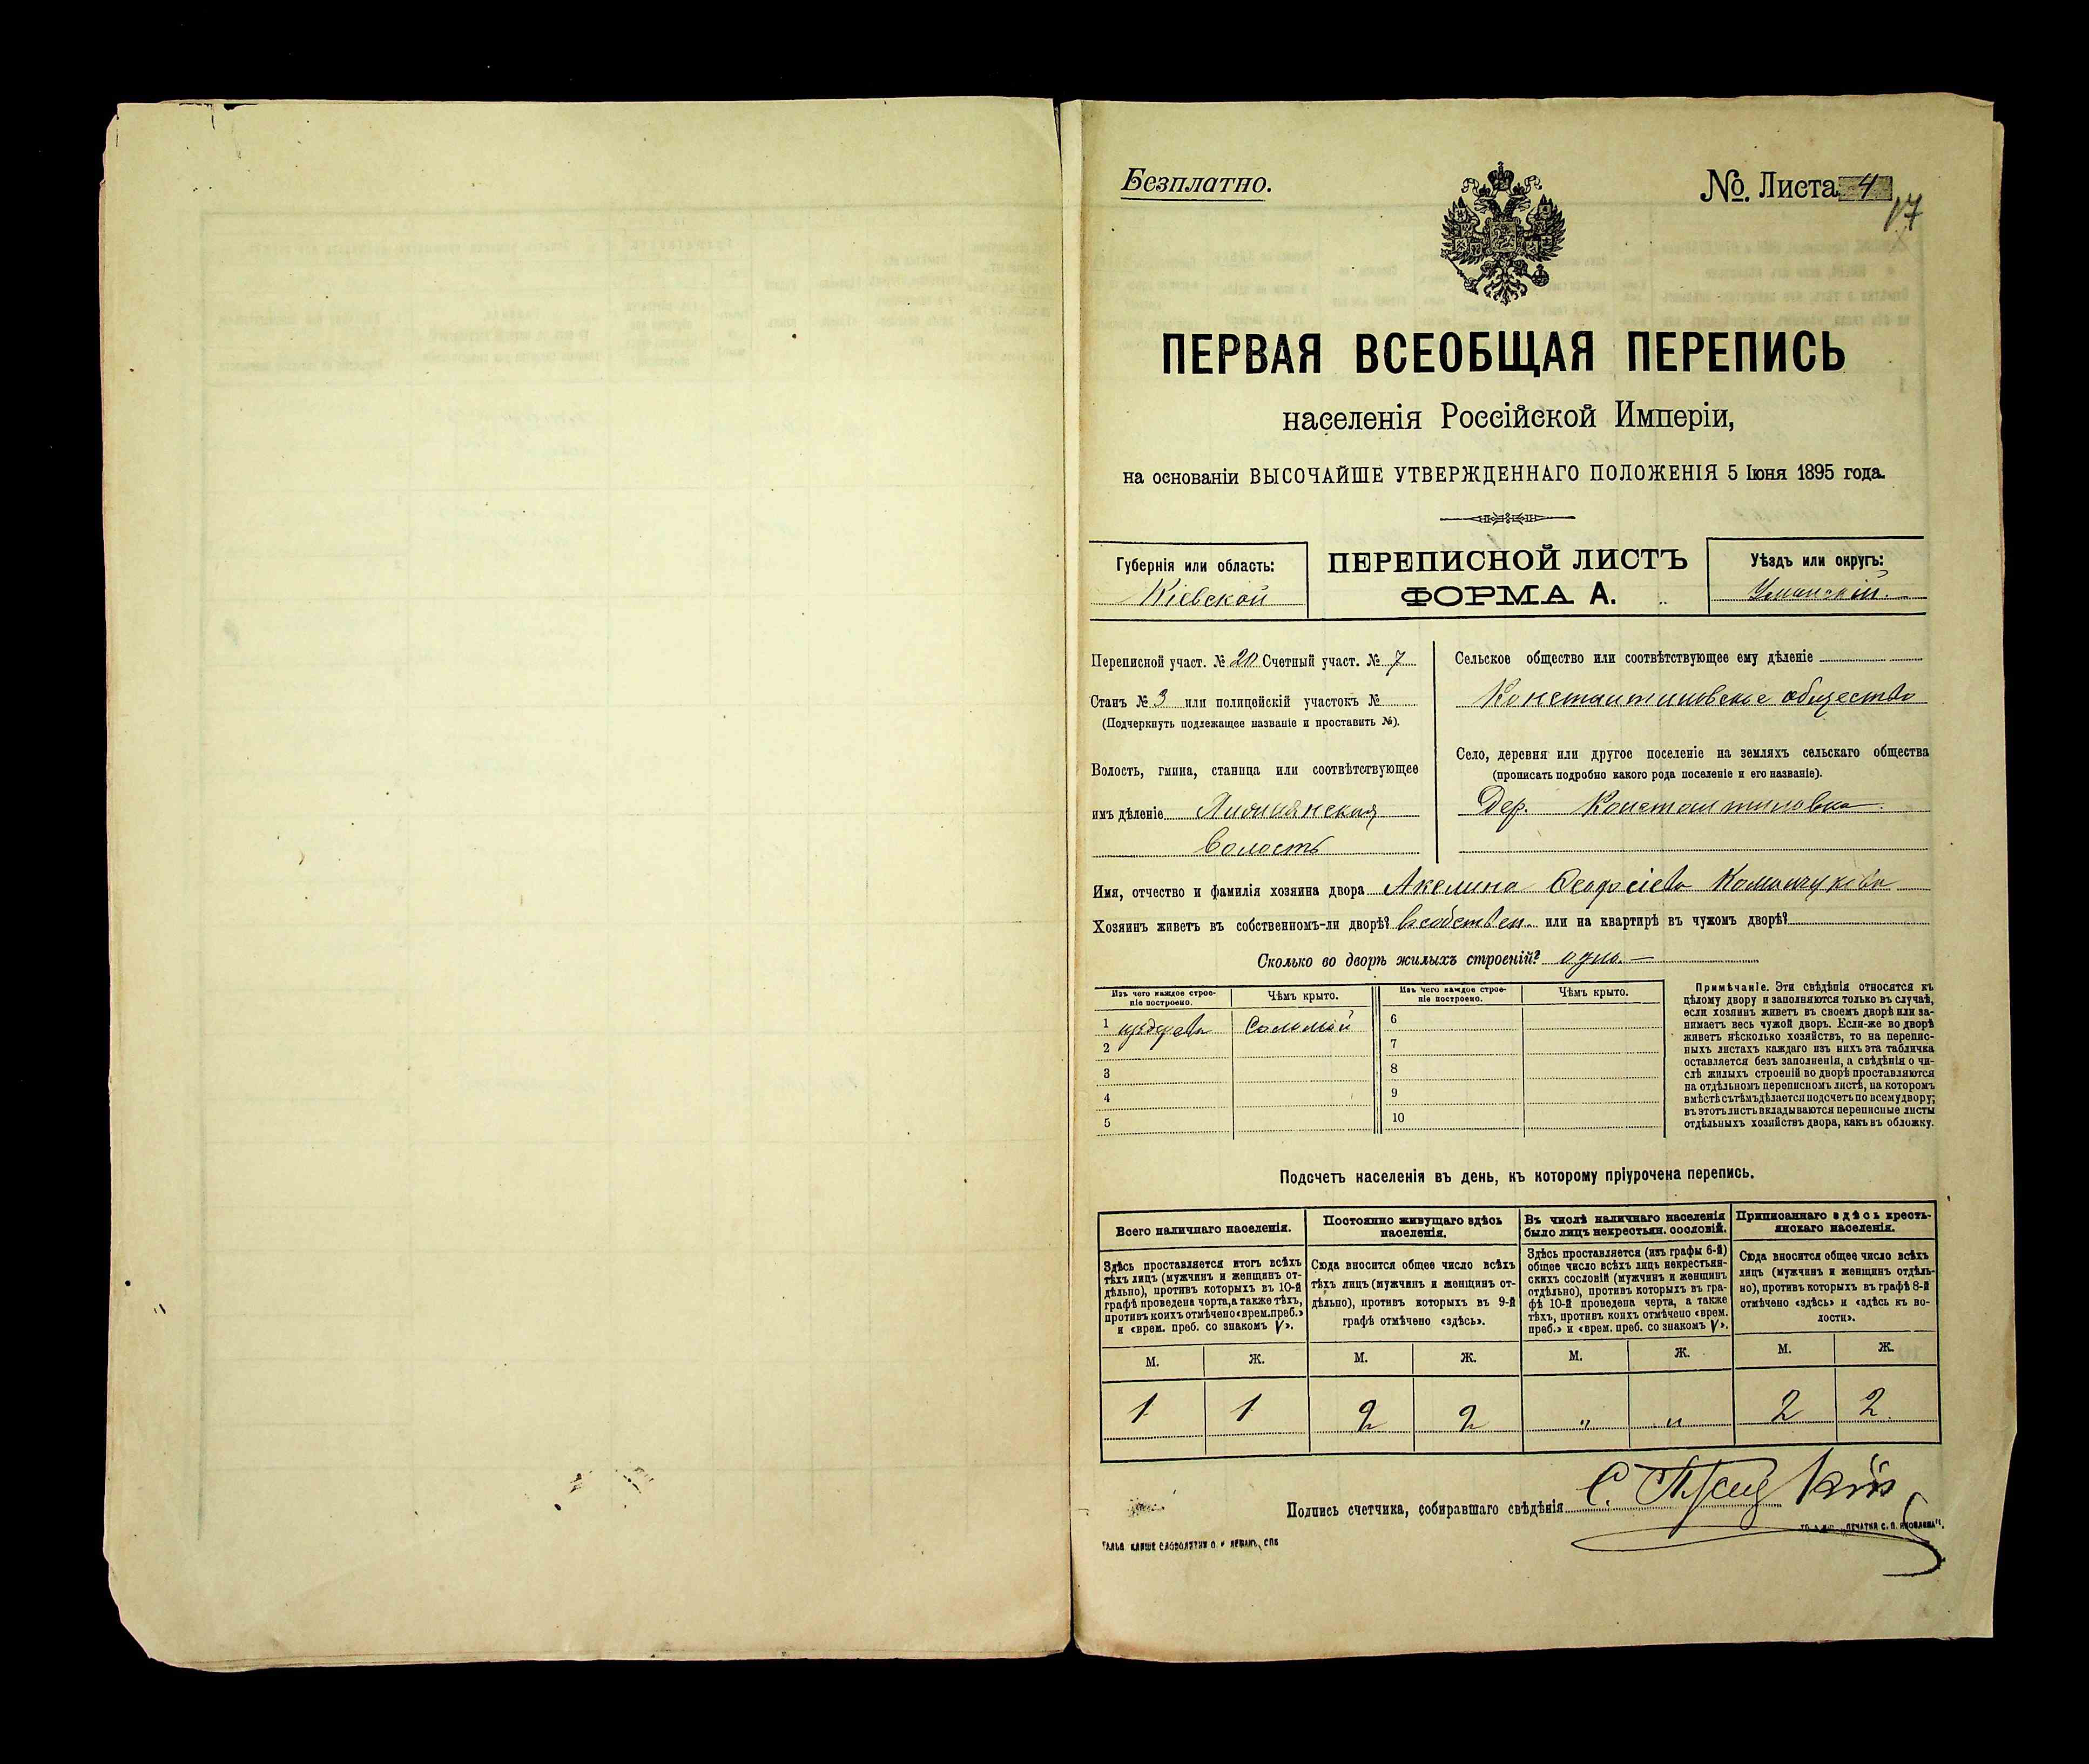 Безплатно.
№. Листа 4
17
ПЕРВАЯ ВСЕОБЩАЯ ПЕРЕПИСЬ
населенія Россійской Имперіи,
на основаніи ВЫСОЧАЙШЕ УТВЕРЖДЕННАГО ПОЛОЖЕНІЯ 5 Іюня 1895 года.
Губернія или область:
Кіевской
ПЕРЕПИСНОЙ ЛИСТЪ
ФОРМА А.
Уѣздъ или округъ:
Уманскій.
Переписной участ. № 20 Счетный участ. № 7
Станъ № 3 или полицейскій участокъ №
(Подчеркнуть подлежащее названіе и проставить №).
Волость, гмина, станица или соотвѣтствующее
имъ дѣленіе
волость
Сельское общество или соотвѣтствующее ему дѣленіе
Константиновское общество
Село, деревня или другое поселеніе на земляхъ сельскаго общества
(прописать подробно какого рода поселеніе и его названіе).
Дер. Константиновка
Имя, отчество и фамилія хозяина двора Акелина
Хозяинъ живетъ въ собственномъ-ли дворѣ? в собствен. или на квартирѣ въ чужомъ дворѣ?
Сколько во дворѣ жилыхъ строеній? одно. —
Изъ чего каждое строе-
ніе построено.
Чѣмъ крыто.
Изъ чего каждое строе-
ніе построено.
Чѣмъ крыто.
1 Соломой
2
3
4
5
6
7
8
9
10
Примѣчаніе. Эти свѣдѣнія относятся къ
цѣлому двору и заполняются только въ случаѣ,
если хозяинъ живетъ въ своемъ дворѣ или за-
нимаетъ весь чужой дворъ. Если-же во дворѣ
живетъ нѣсколько хозяйствъ, то на перепис-
ныхъ листахъ каждаго изъ нихъ эта табличка
оставляется безъ заполненія, а свѣдѣнія о чи-
слѣ жилыхъ строеній во дворѣ проставляются
на отдѣльномъ переписномъ листѣ, на которомъ
вмѣстѣ съ тѣмъ дѣлается подсчетъ по всему двору;
въ этотъ листъ вкладываются переписные листы
отдѣльныхъ хозяйствъ двора, какъ въ обложку.
Подсчетъ населенія въ день, къ которому пріурочена перепись.
Всего наличнаго населенія.
Здѣсь проставляется итогъ всѣхъ
тѣхъ лицъ (мужчинъ и женщинъ от-
дѣльно), противъ которыхъ въ 10-й
графѣ проведена черта, а также тѣхъ,
противъ коихъ отмѣчено «врем. преб.»
и «врем. преб. со знакомъ V».
Постоянно живущаго здѣсь
населенія.
Сюда вносится общее число всѣхъ
тѣхъ лицъ (мужчинъ и женщинъ от-
дѣльно), противъ которыхъ въ 9-й
графѣ отмѣчено «здѣсь».
Въ числѣ наличнаго населенія
было лицъ некрестьян. сословій.
Здѣсь проставляется (изъ графы 6-й)
общее число всѣхъ лицъ некрестьян-
скихъ сословій (мужчинъ и женщинъ
отдѣльно), противъ которыхъ въ гра-
фѣ 10-й проведена черта, а также
тѣхъ, противъ коихъ отмѣчено «врем.
преб.» и «врем. преб. со знакомъ V».
Приписаннаго здѣсь кресть-
янскаго населенія.
Сюда вносится общее число всѣхъ
лицъ (мужчинъ и женщинъ отдѣль-
но), противъ которыхъ въ графѣ 8-й
отмѣчено «здѣсь» и «здѣсь къ во-
лости».
М. Ж. М. Ж. М. Ж. М. Ж.
1 1 2 2 „ „ 2 2
Подпись счетчика, собиравшаго свѣдѣнія С.